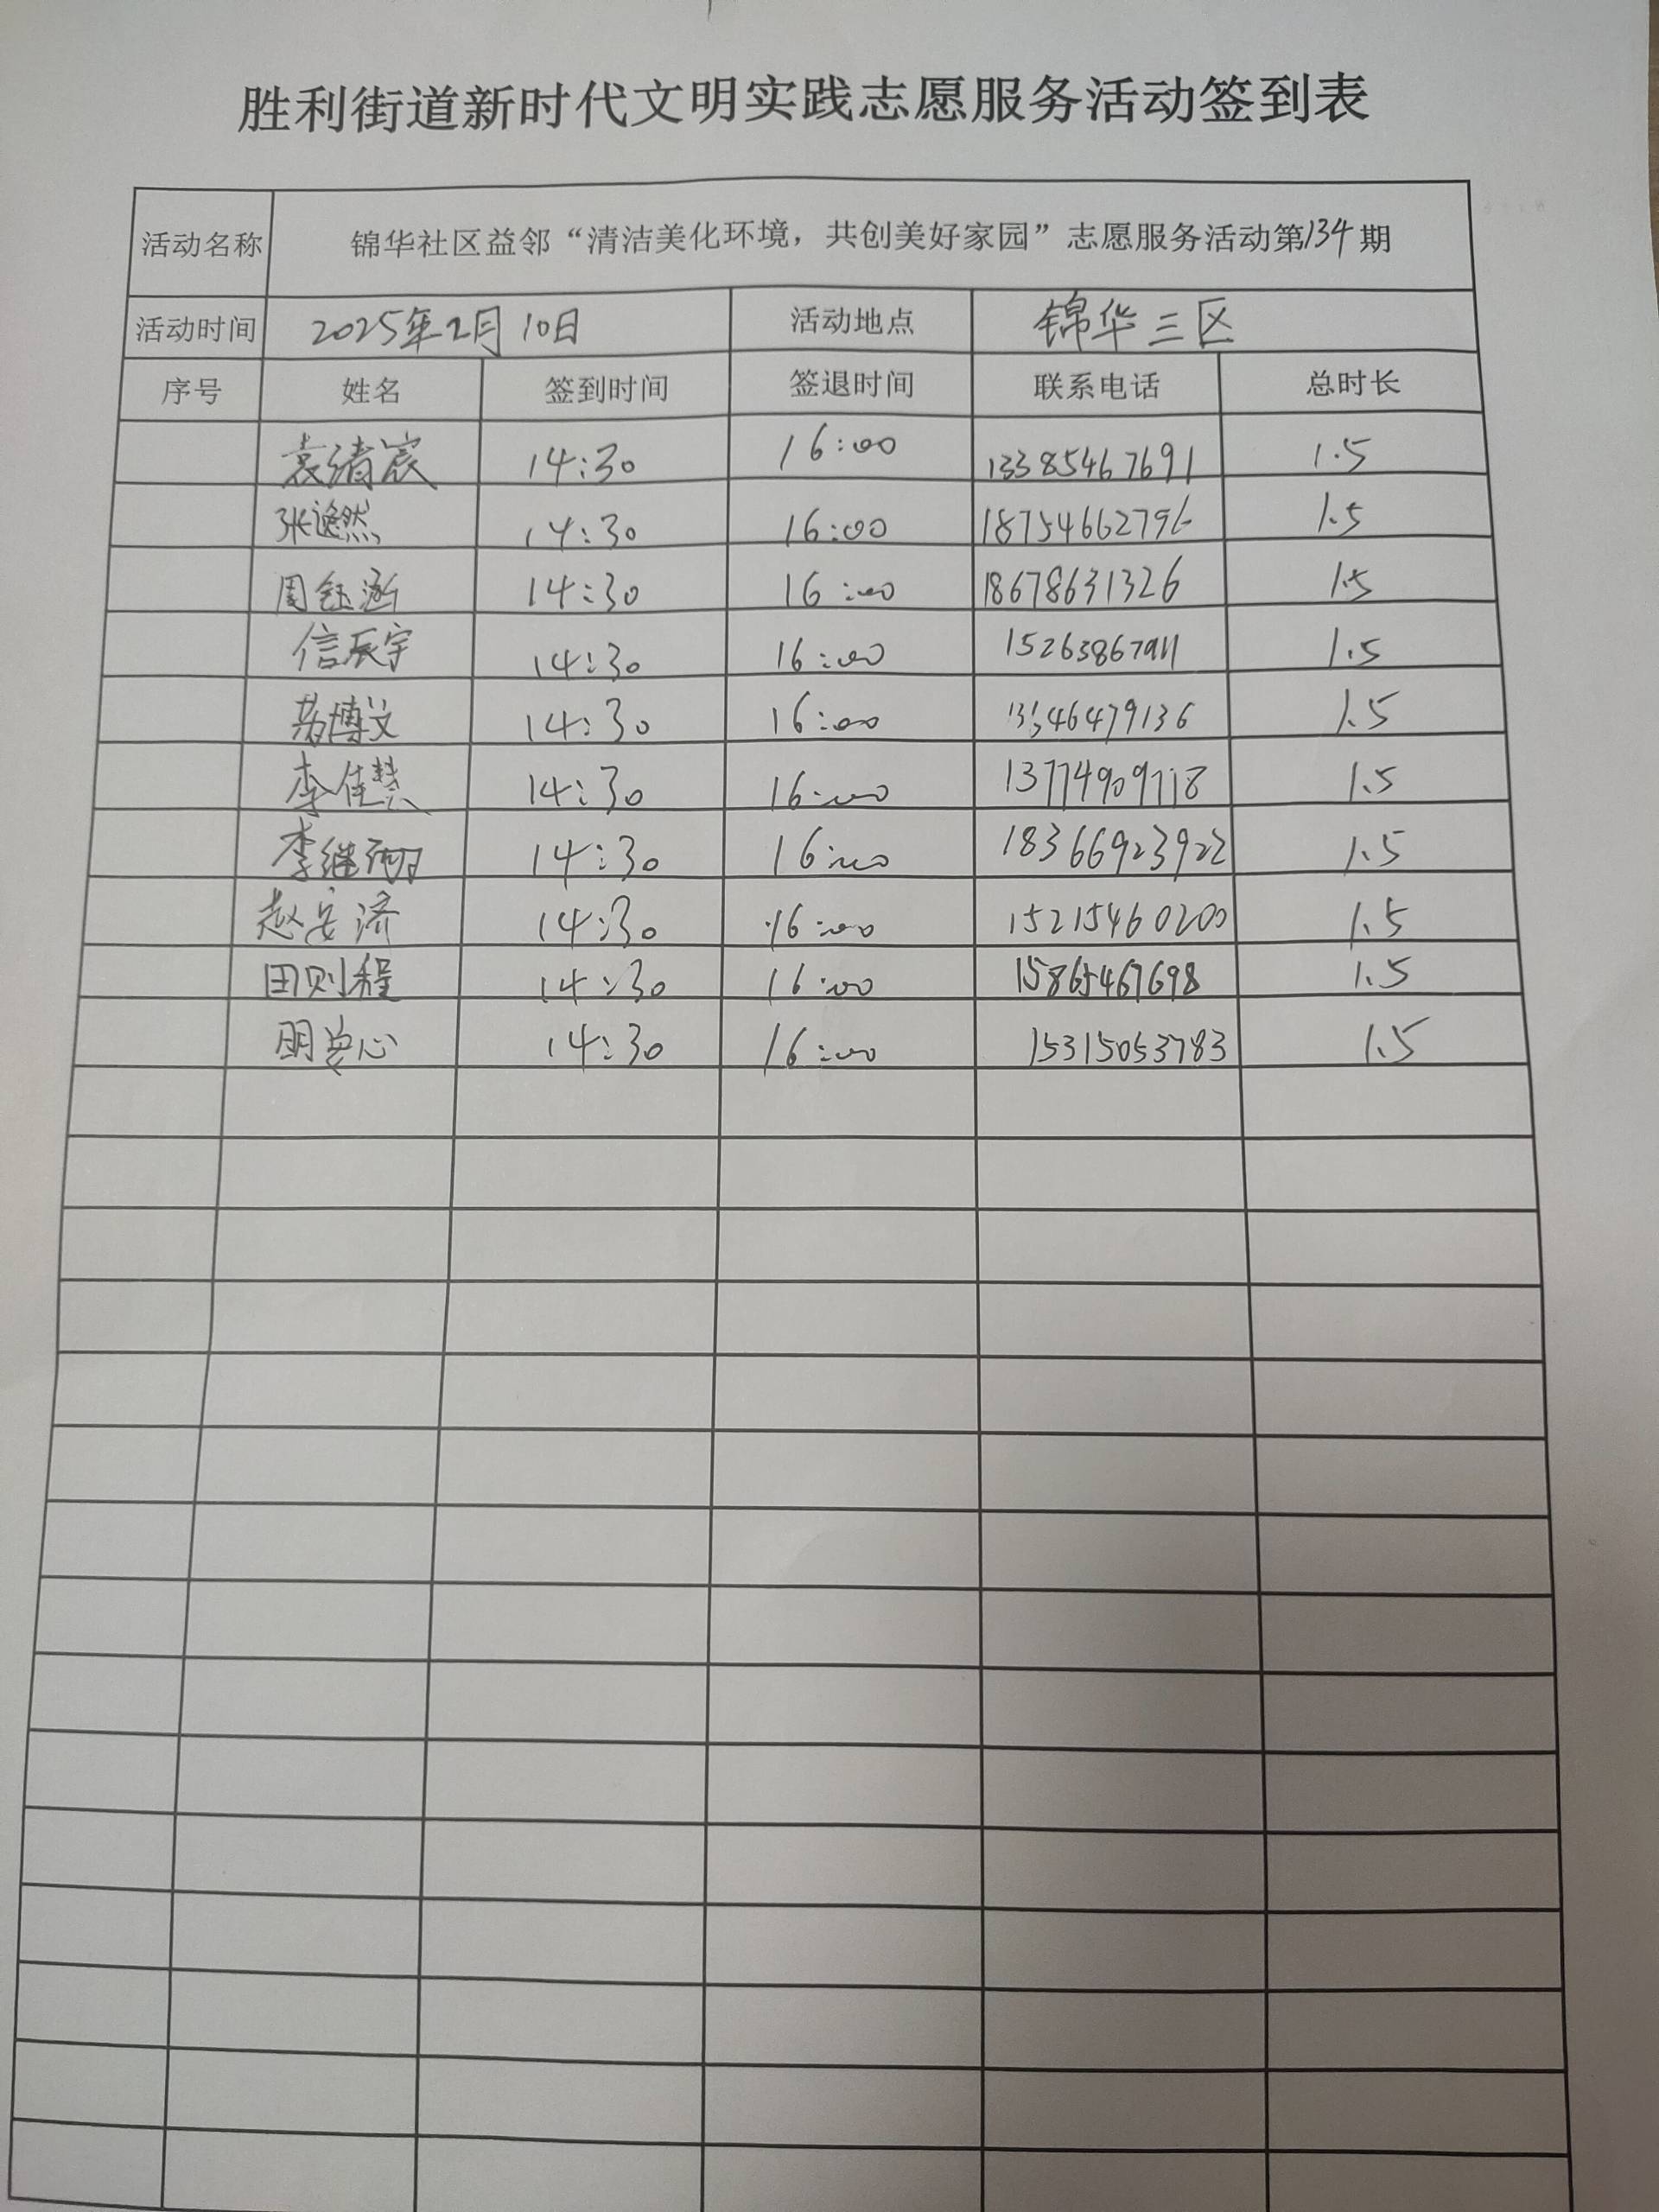 胜利街道新时代文明实践志愿服务活动签到表
活动名称 锦华社区益邻“清洁美化环境，共创美好家园”志愿服务活动第134期
活动时间 2025年2月10日 活动地点 锦华三区
序号 姓名 签到时间 签退时间 联系电话 总时长
袁绪宸 14:30 16:00 13385467691 1.5
张逸然 14:30 16:00 18754662796 1.5
周钰涵 14:30 16:00 18678631326 1.5
信辰宇 14:30 16:00 15263867911 1.5
苏博文 14:30 16:00 1.5
李佳慧 14:30 16:00 1.5
李继 14:30 16:00 18366923922 1.5
赵安济 14:30 16:00 15215460200 1.5
田则程 14:30 16:00 15865467698 1.5
明 心 14:30 16:00 15315053783 1.5